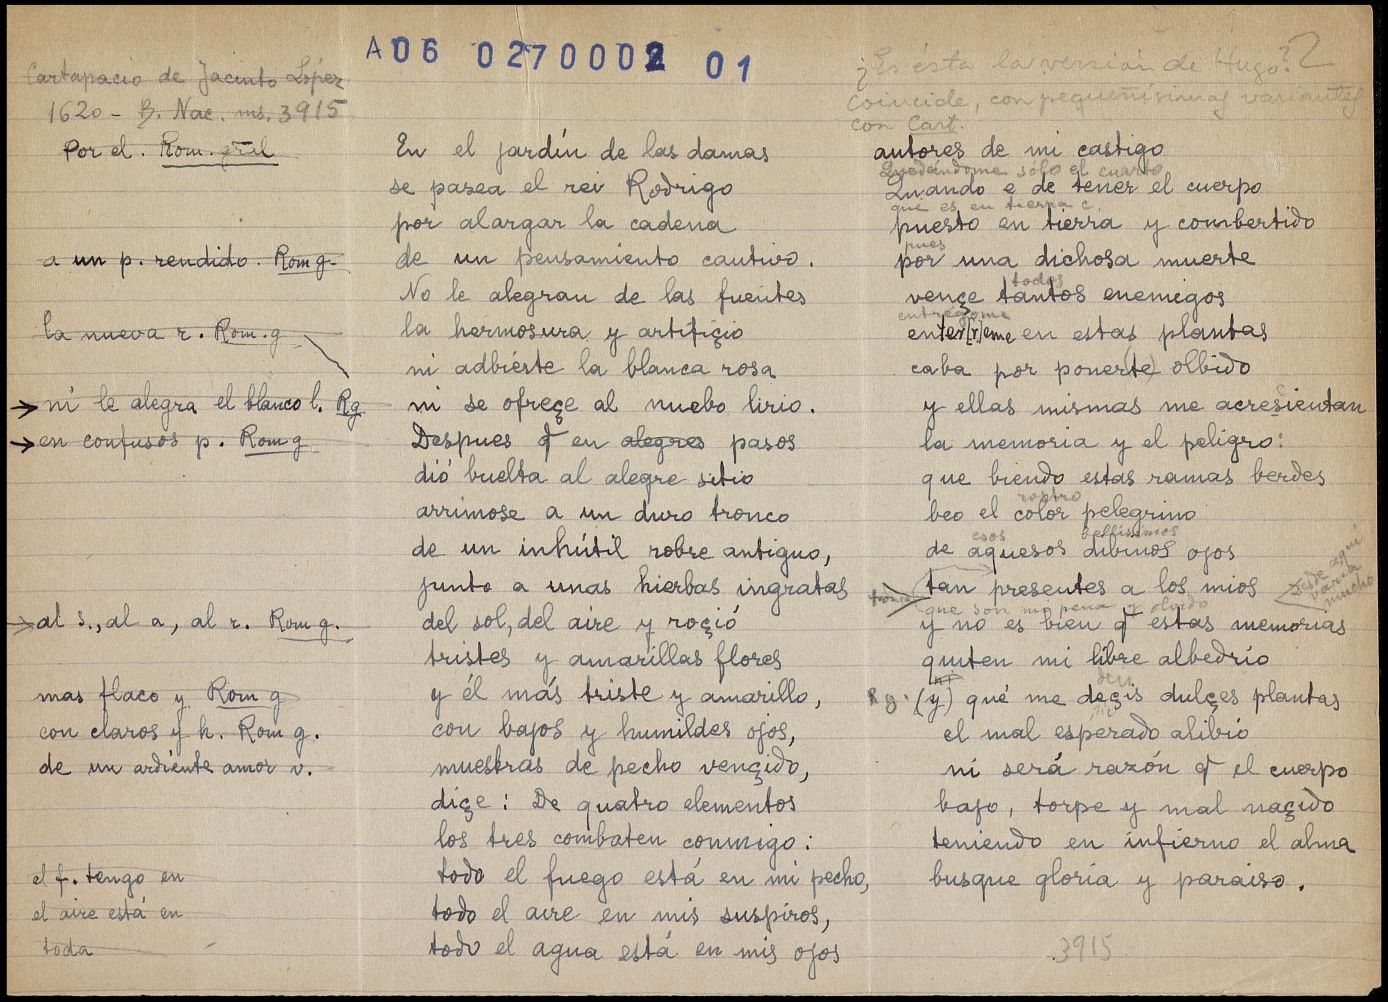 A06 0270002 01
Cartapacio de Jacinto López
1620 - B. Nac. ms. 3915
Por el. Rom. gral
a un p. rendido. Rom g.
la nueva r. Rom. g
→ ni le alegra el blanco l. Rg
→ en confusos p. Rom g
→ al s., al a, al r. Rom g.
mas flaco y Rom g
con claros y h. Rom g.
de un ardiente amor v.
el f. tengo en
el aire está en
toda
En el jardín de las damas
se pasea el rei Rodrigo
por alargar la cadena
de un pensamiento cautivo.
No le alegran de las fuentes
la hermosura y artifiçio
ni adbierte la blanca rosa
ni se ofreçe al nuebo lirio.
Despues q̃ en alegres pasos
dió buelta al alegre sitio
arrimose a un duro tronco
de un inhútil robre antiguo,
junto a unas hierbas ingratas
del sol, del aire y roçió
tristes y amarillas flores
y él más triste y amarillo,
con bajos y humildes ojos,
muestras de pecho vençido,
diçe: De quatro elementos
los tres combaten conmigo:
todo el fuego está en mi pecho,
todo el aire en mis suspiros,
todo el agua está en mis ojos
¿Es ésta la versión de Hugo? 2
Coincide, con pequeñísimas variantes
con Cart.
autores de mi castigo
Quedándome sólo el cuarto
Quando e de tener el cuerpo
que es en tierra c.
puesto en tierra y combertido
pues
por una dichosa muerte
todos
vençe tantos enemigos
entregome
enter[r]eme en estas plantas
caba por ponerte) olbido
y ellas mismas me acresientan
la memoria y el peligro:
que biendo estas ramas berdes
rostro
beo el color pelegrino
esos bellissimos
de aquesos dibinos ojos
tan presentes a los mios
Desde aquí varía mucho
que son mi pena y olvido
y no es bien q̃ estas memorias
quiten mi libre albedrío
Rg. (y) qué me deçis dulçes plantas
el mal esperado alibio
ni será razón q̃ el cuerpo
bajo, torpe y mal naçido
teniendo en infierno el alma
busque gloria y paraiso.
3915